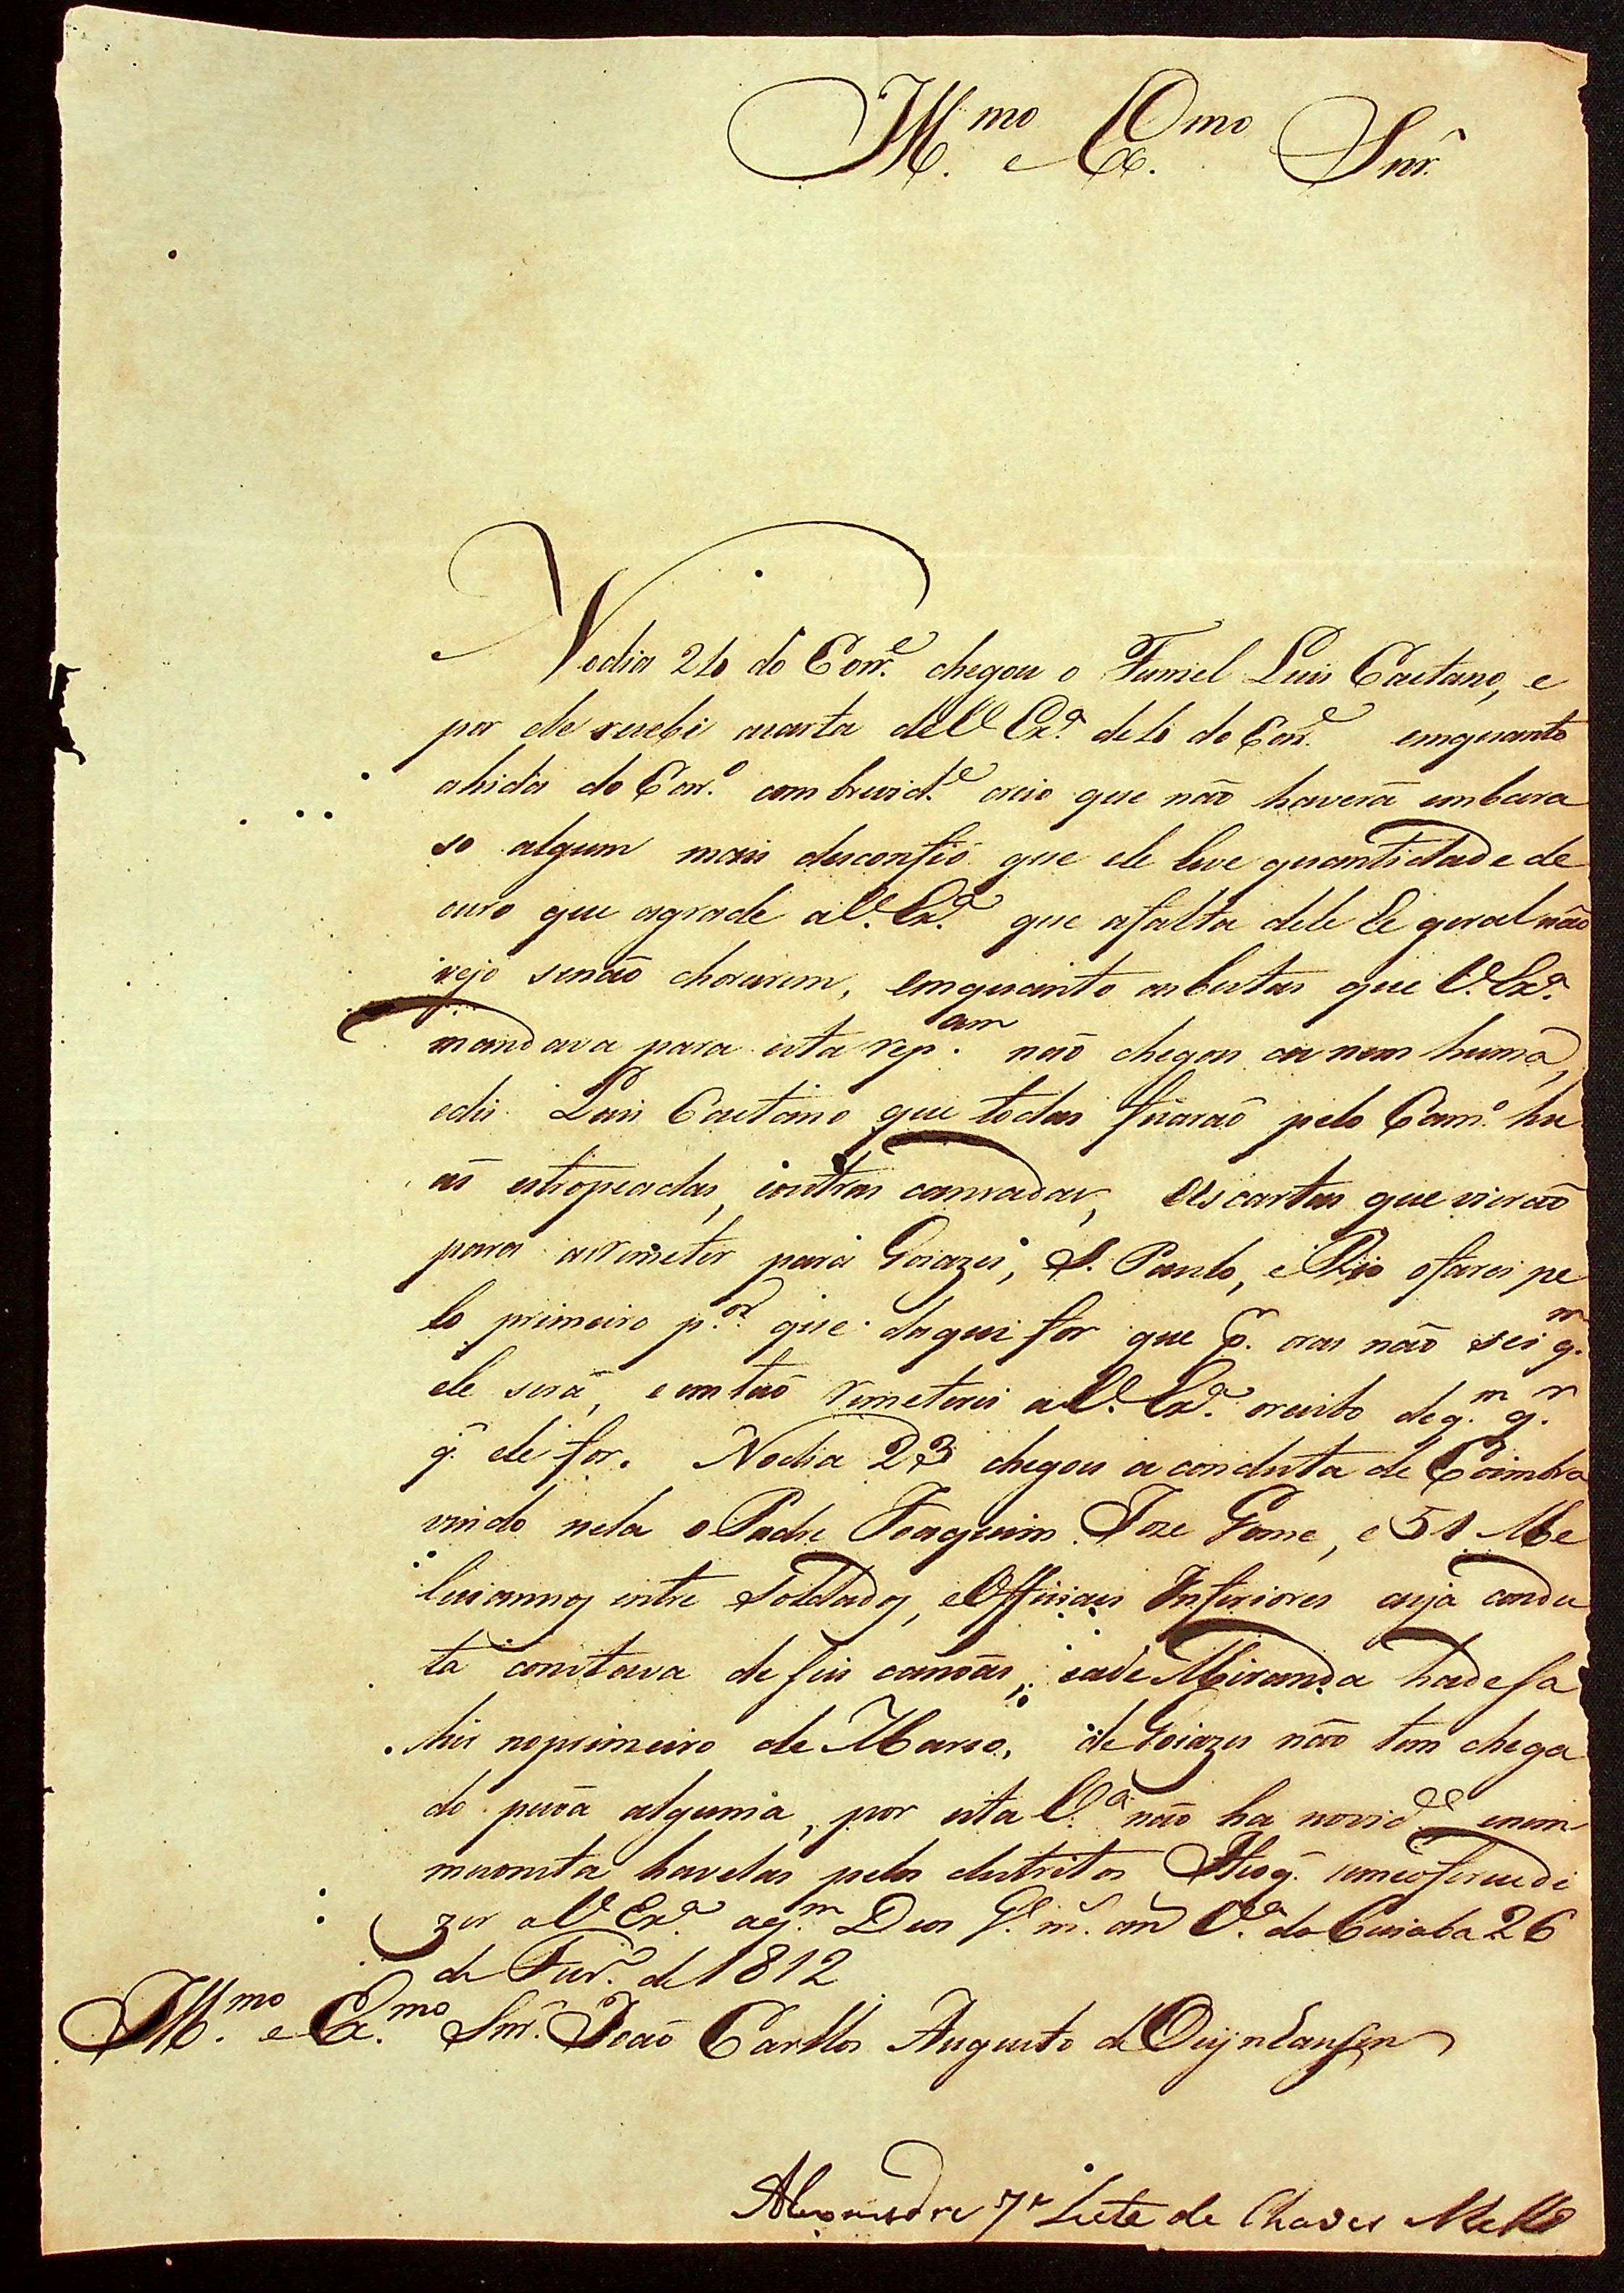 Ill.mo e Ex.mo Snr.
No dia 24 do Corr.e chegou o Furriel Luis Caetano, e
por ele recebi acarta deV. Ex.a de 4 do Corr.e emquanto
ahida do Corr.o com brevid.e creio que não haverá embara
so algum mais desconfio que ele leve quantidade de
ouro que agrade aV. Ex.a que afalta dele he geral não
vejo senão chorarem, emquanto asbestas que V. Ex.a
mandava para esta rep.am não chegou ca nem huma,
edis Luis Caetano que todas ficarão pelo Cam.o hu
ãs estropeadas, eoutras cansadas, As cartas que vierão
para arremeter para Goiazes, S. Paulo, e Rio ofarei pe
lo primeiro p.or que daqui for que p.r oras não sei q.m
ele será, e então remeterei aV. Ex.a orecibo de q.m q.r
q. ele for. No dia 23 chegou aconduta de Coimbra
vindo nela o Padre Joaquim Joze Gome, e 51 Me
liciannos entre Soldados, eOfficiais Inferiores cuja condu
ta constava de seis canoas, eade Miranda hade sa
hir noprimeiro de Marso, de Goiazes não tem chega
do pesoa alguma, por esta V.a não ha novid.e enem
meconsta havelas pelos destritos He oq. semeoferece di
zer aV. Ex.a aq.m Deos G.e m.s an.s V.a do Cuiaba 26
de Fevr.o de 1812
Ill.mo e Ex.mo Snr. João Carllos Augusto d Oeijnhausen
Alexandre J.e Leite de Chaves Mello